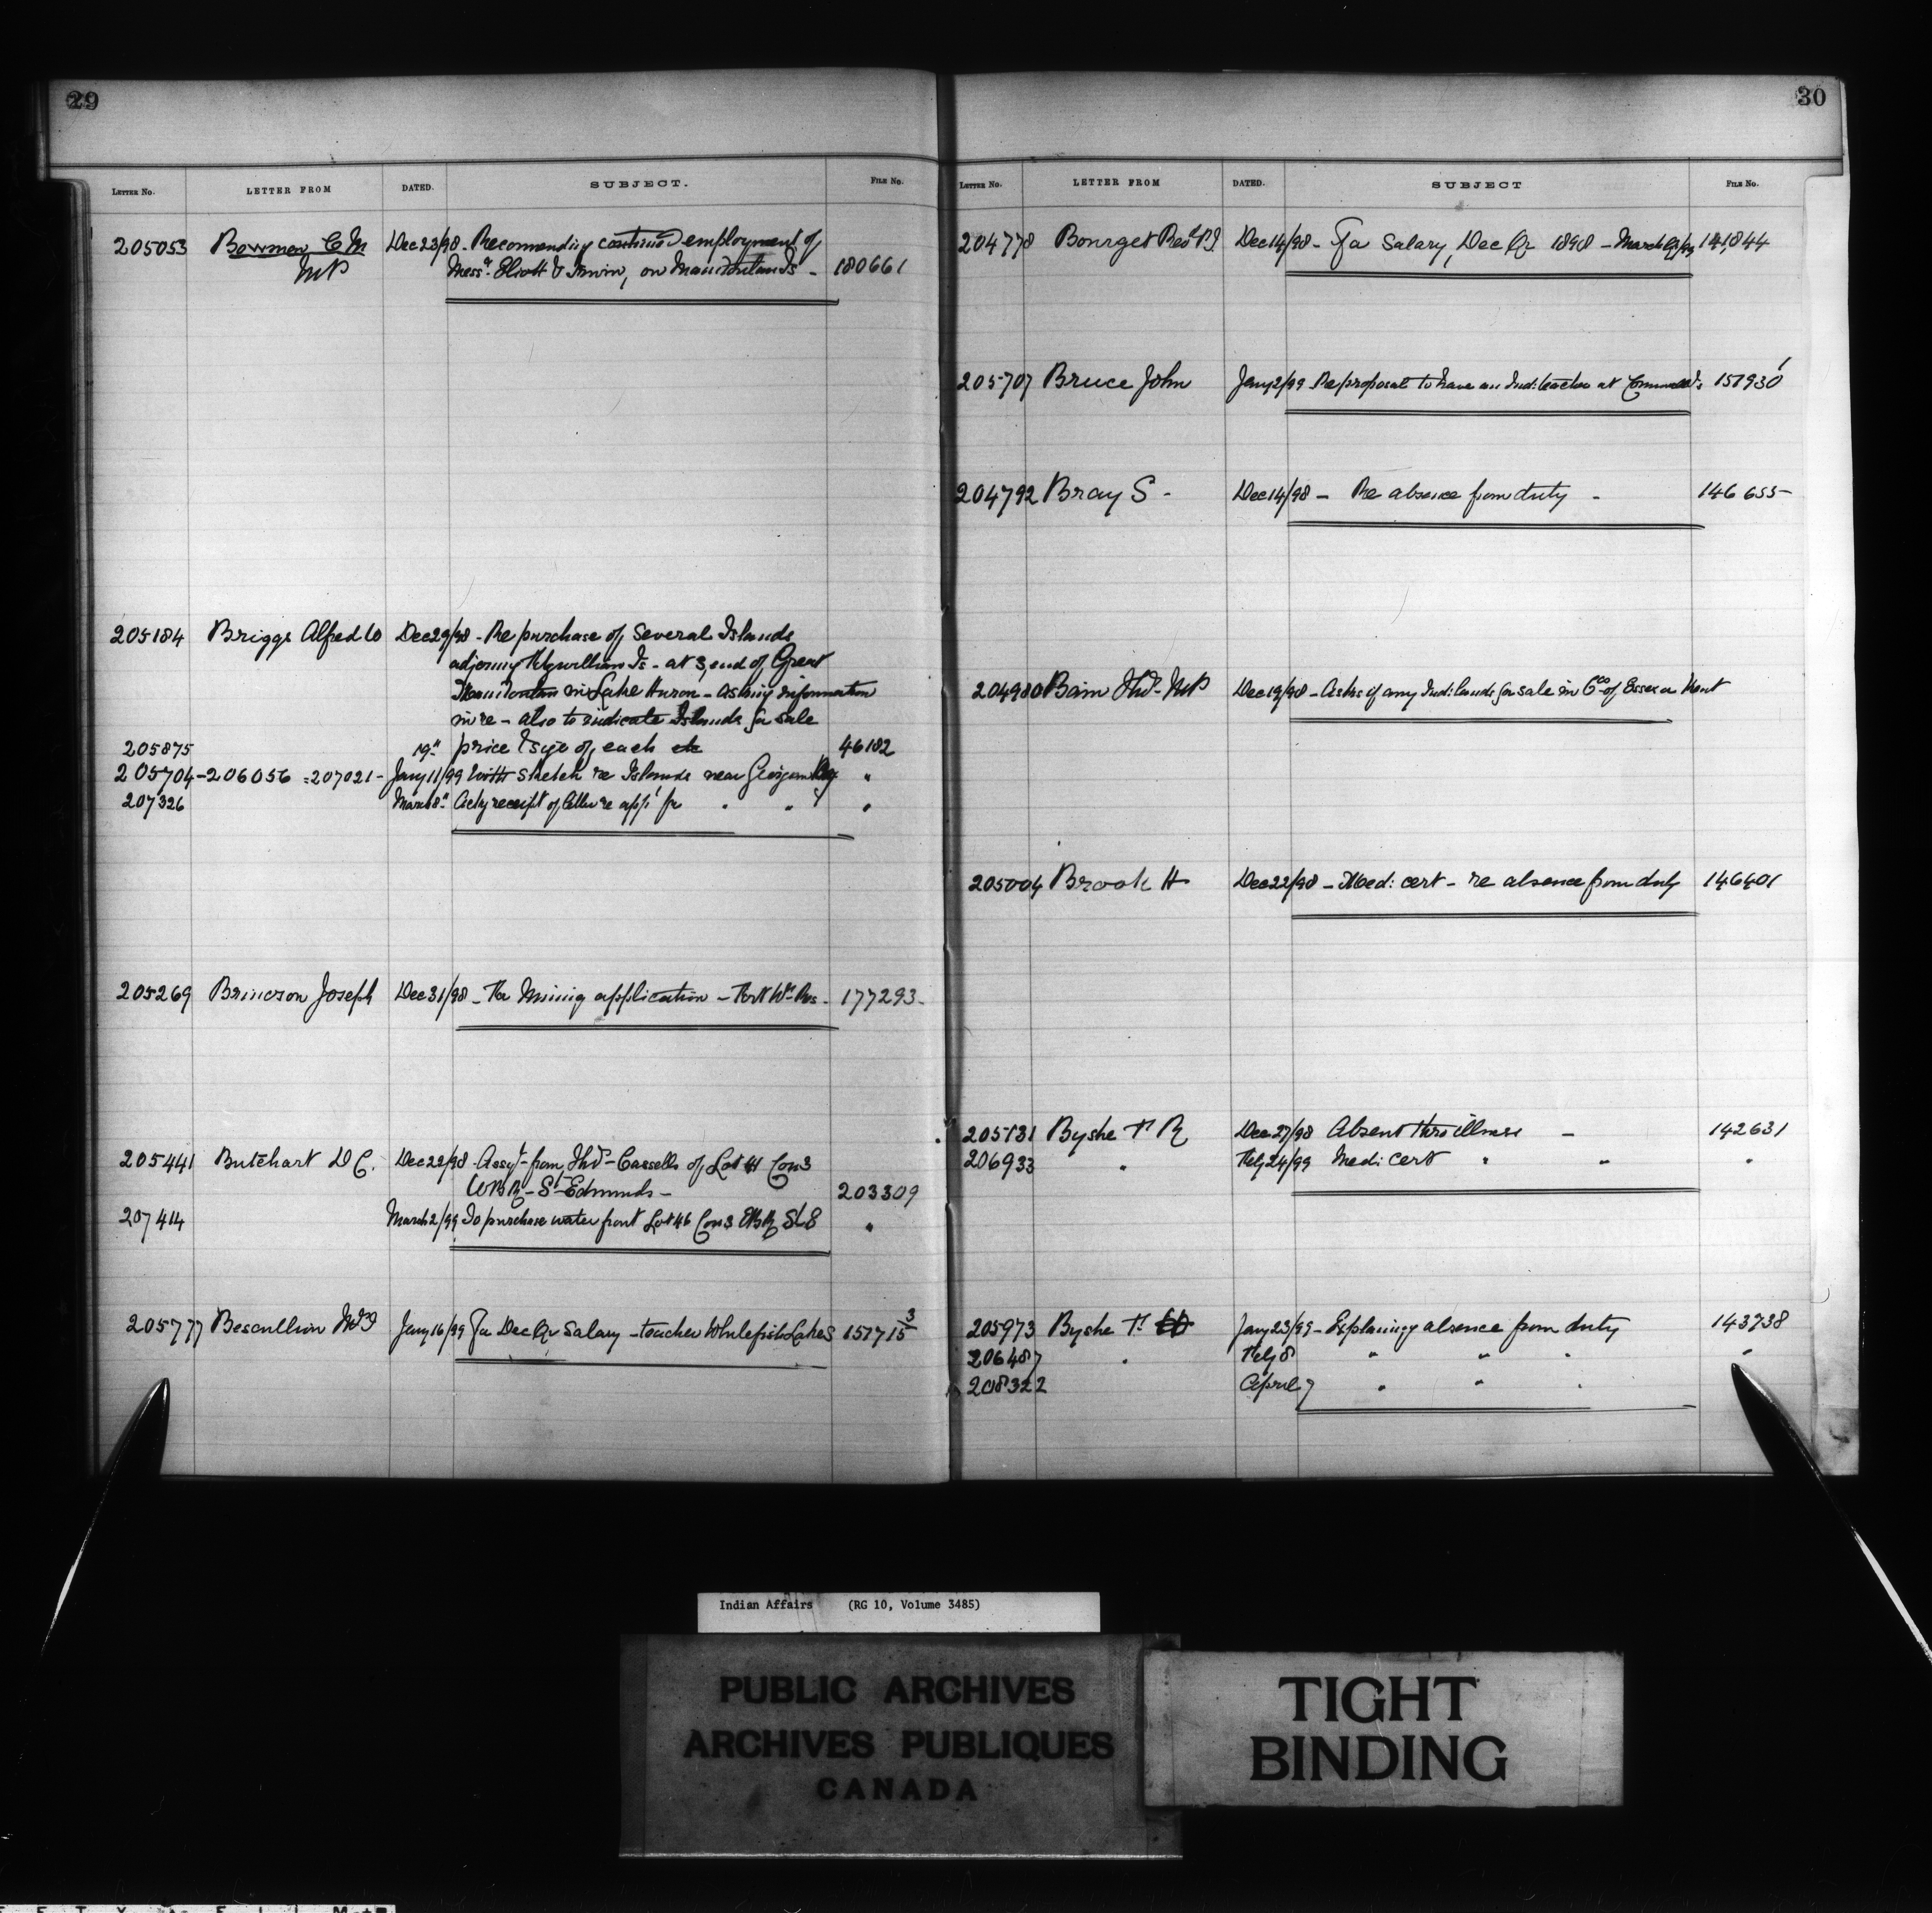 29
LETTER No. LETTER FROM DATED. SUBJECT. FILE No.
205053 Bowman C M Dec 23/98 - Recommending continued employment of
MP Messrs Eliott & Irwin, on Manitoulin Is - 180661
205184 Briggs Alfred W Dec 29/98 - Re purchase of several Islands
adjoining Fitzwilliam Is - at S, end of Great
Manitoulin in Lake Huron - asking information
in re - also to indicate Islands for sale
205875 19" price & size of each etc 46182
205704 - 206056 = 207021 - Jany 11/99 With sketch re Islands near Georgian Bay "
207326 March 8" Ackg receipt of letter re appn for " " "
205269 Brincson Joseph Dec 31/98 - Re Mining application - Fort Wm Res - 177293 -
205441 Butchart D C. Dec 22/98 - Assgt - from Thos - Cassells of Lot 41 Con 3
WBR - St Edmunds - 203309
207414 March 2/99 To purchase water front Lot 46 Con 3 EBR St E "
205777 Bescullion Jany 16/99 For Dec Qr Salary - teacher Whitefish Lakes 151715 3
30
LETTER No. LETTER FROM DATED. SUBJECT FILE No.
204778 Bourget Revd P J Dec 14/98 - For Salary, Dec Qr 1898 - March Qr/99 141,844
205707 Bruce John Jany 2/99 - Re proposal to have an Ind: teacher at Cornwall Is 151930 1
204792 Bray S - Dec 14/98 - Re absence from duty - 146655 -
204980 Bain Thos - MP Dec 19/98 - Asks if any Ind: lands for sale in Cos - of Essex or Kent
205004 Brook H Dec 22/98 - Med: cert - re absence from duty 146401
205131 Byshe T R Dec 27/98 Absent thro illness - 142631
206933 " Feby 24/99 Medi Cert " " "
205973 Byshe T. Jany 23/99 - Explaining absence from duty 143738
206487 " Feby 8 " " " "
208322 April 7 " " "
Indian Affairs (RG 10, Volume 3485)
PUBLIC ARCHIVES
ARCHIVES PUBLIQUES
CANADA
TIGHT
BINDING